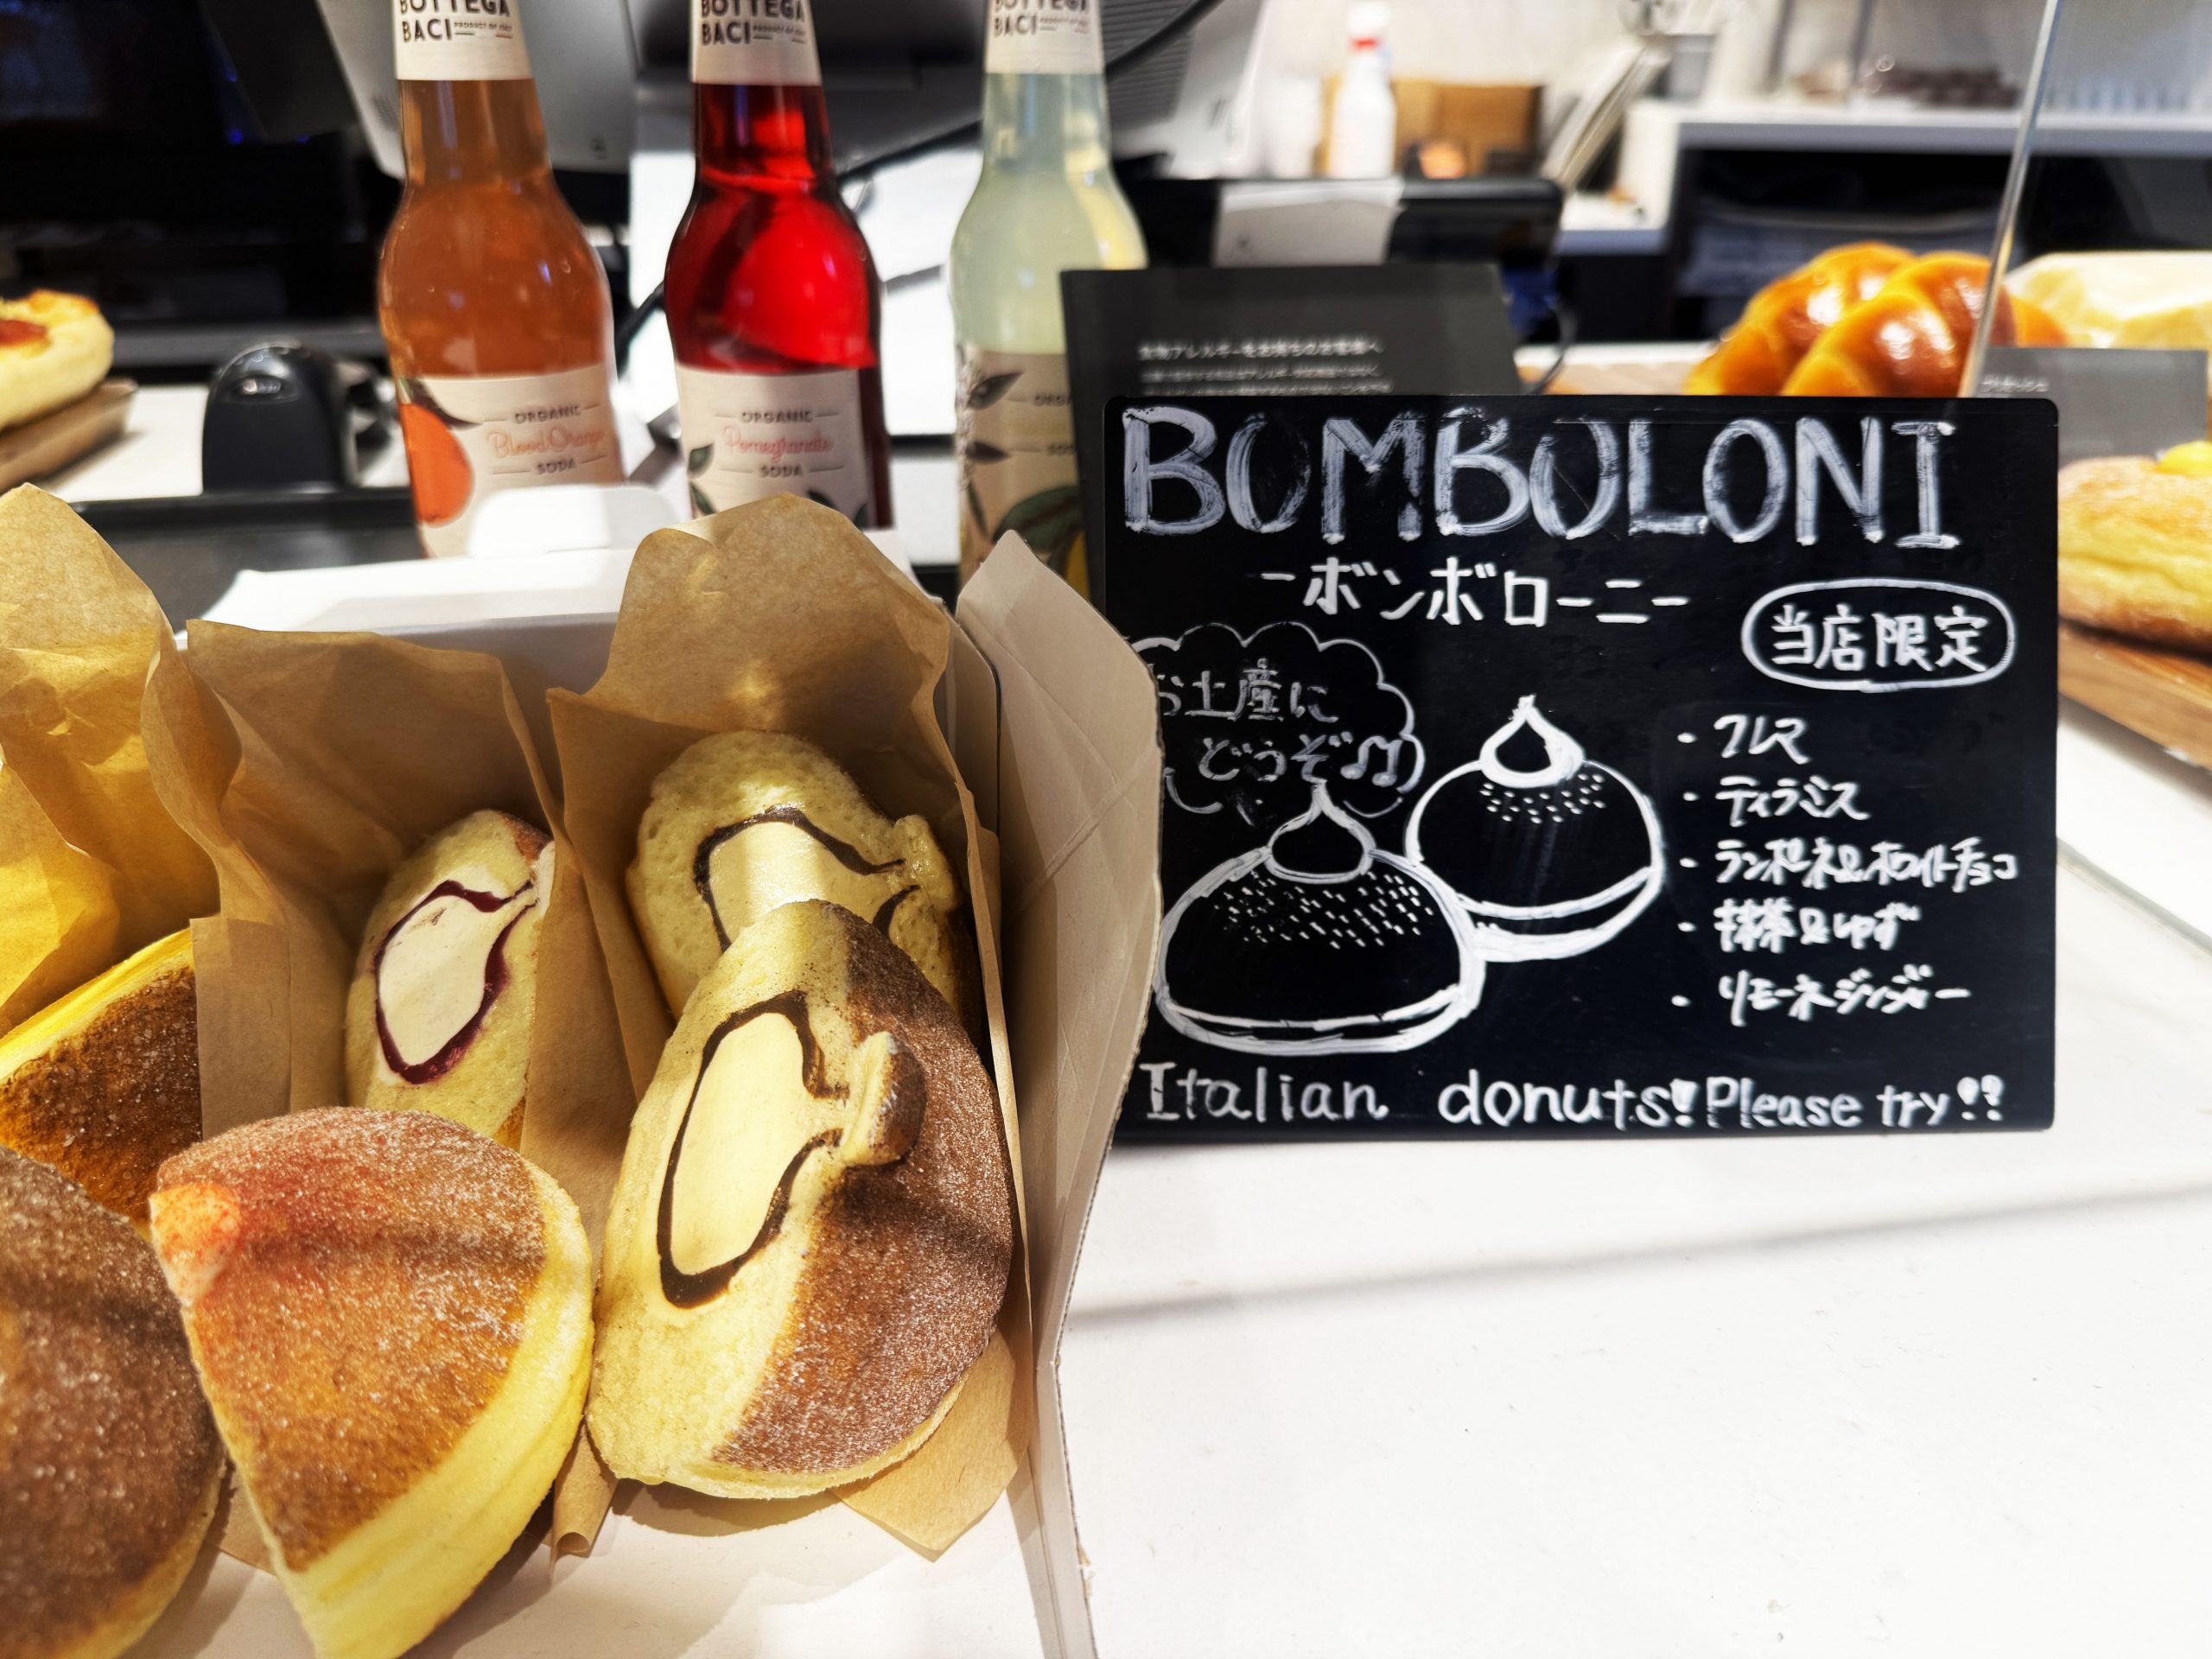 BOTTEGA
BACI
PRODUCT OF ITALY
BOTTEGA
BACI
PRODUCT OF ITALY
BOTTEGA
BACI
PRODUCT OF ITALY
ORGANIC
Blood Orange
SODA
ORGANIC
Pomegranate
SODA
食物アレルギーをお持ちのお客様へ
BOMBOLONI
-ボンボローニ-
当店限定
お土産に
どうぞ♫
・フレス
・ティラミス
・ランポーネ&ホワイトチョコ
・抹茶&ゆず
・リモーネジンジャー
Italian donuts! Please try!!